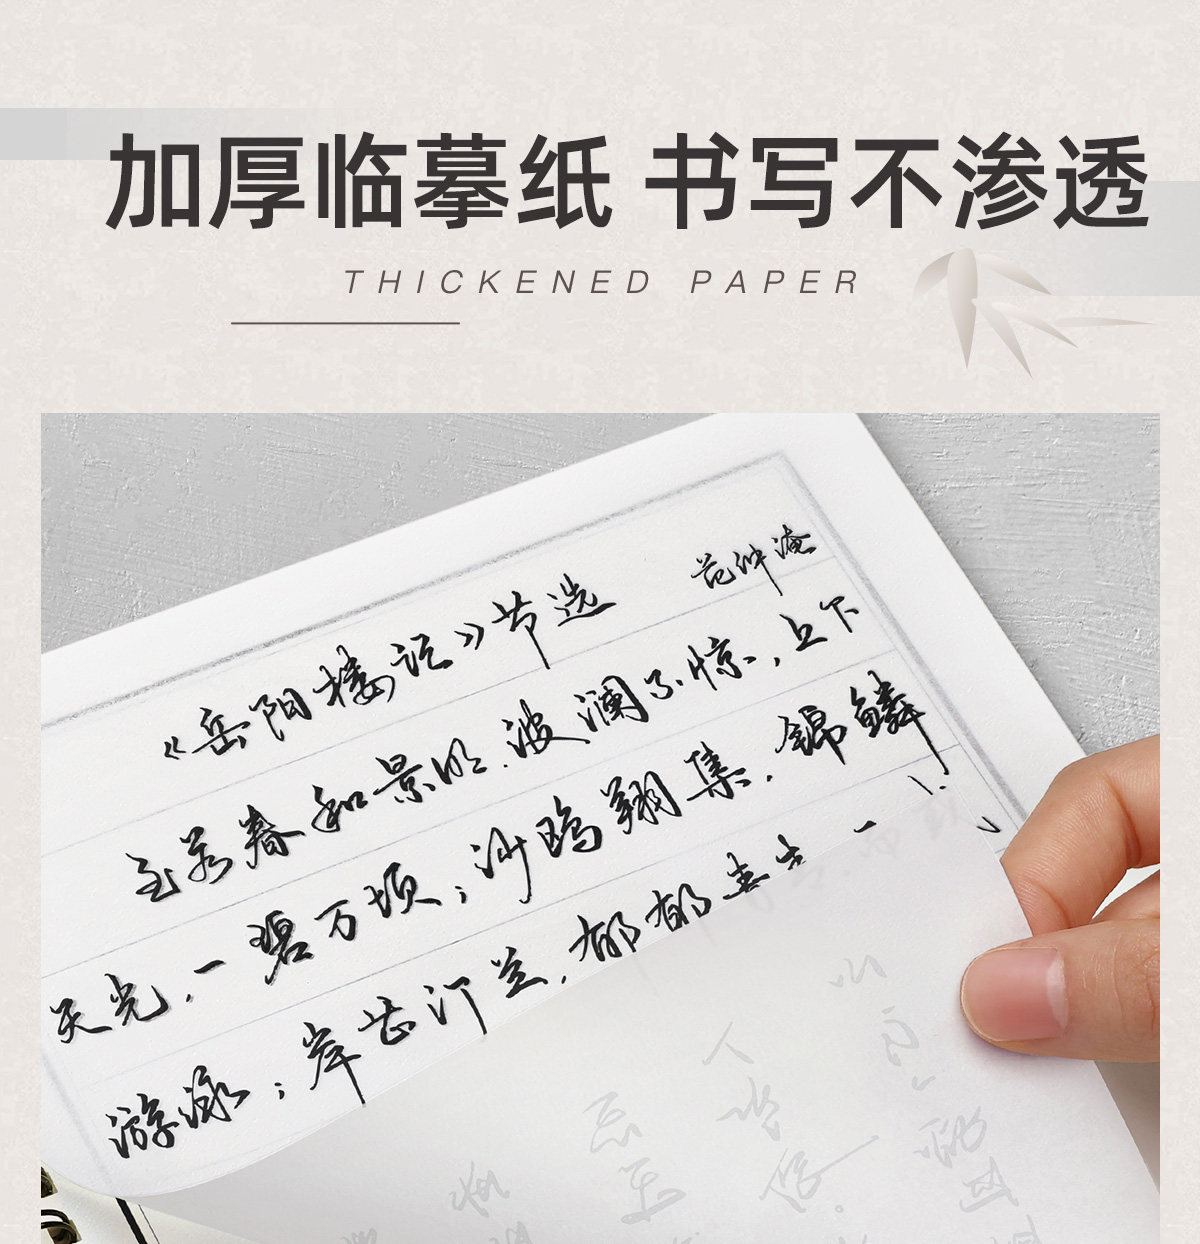 加厚临摹纸 书写不渗透
THICKENED PAPER
《岳阳楼记》节选
范仲淹
至若春和景明,波澜不惊,上下
天光,一碧万顷;沙鸥翔集,锦鳞
游泳;岸芷汀兰,郁郁青青